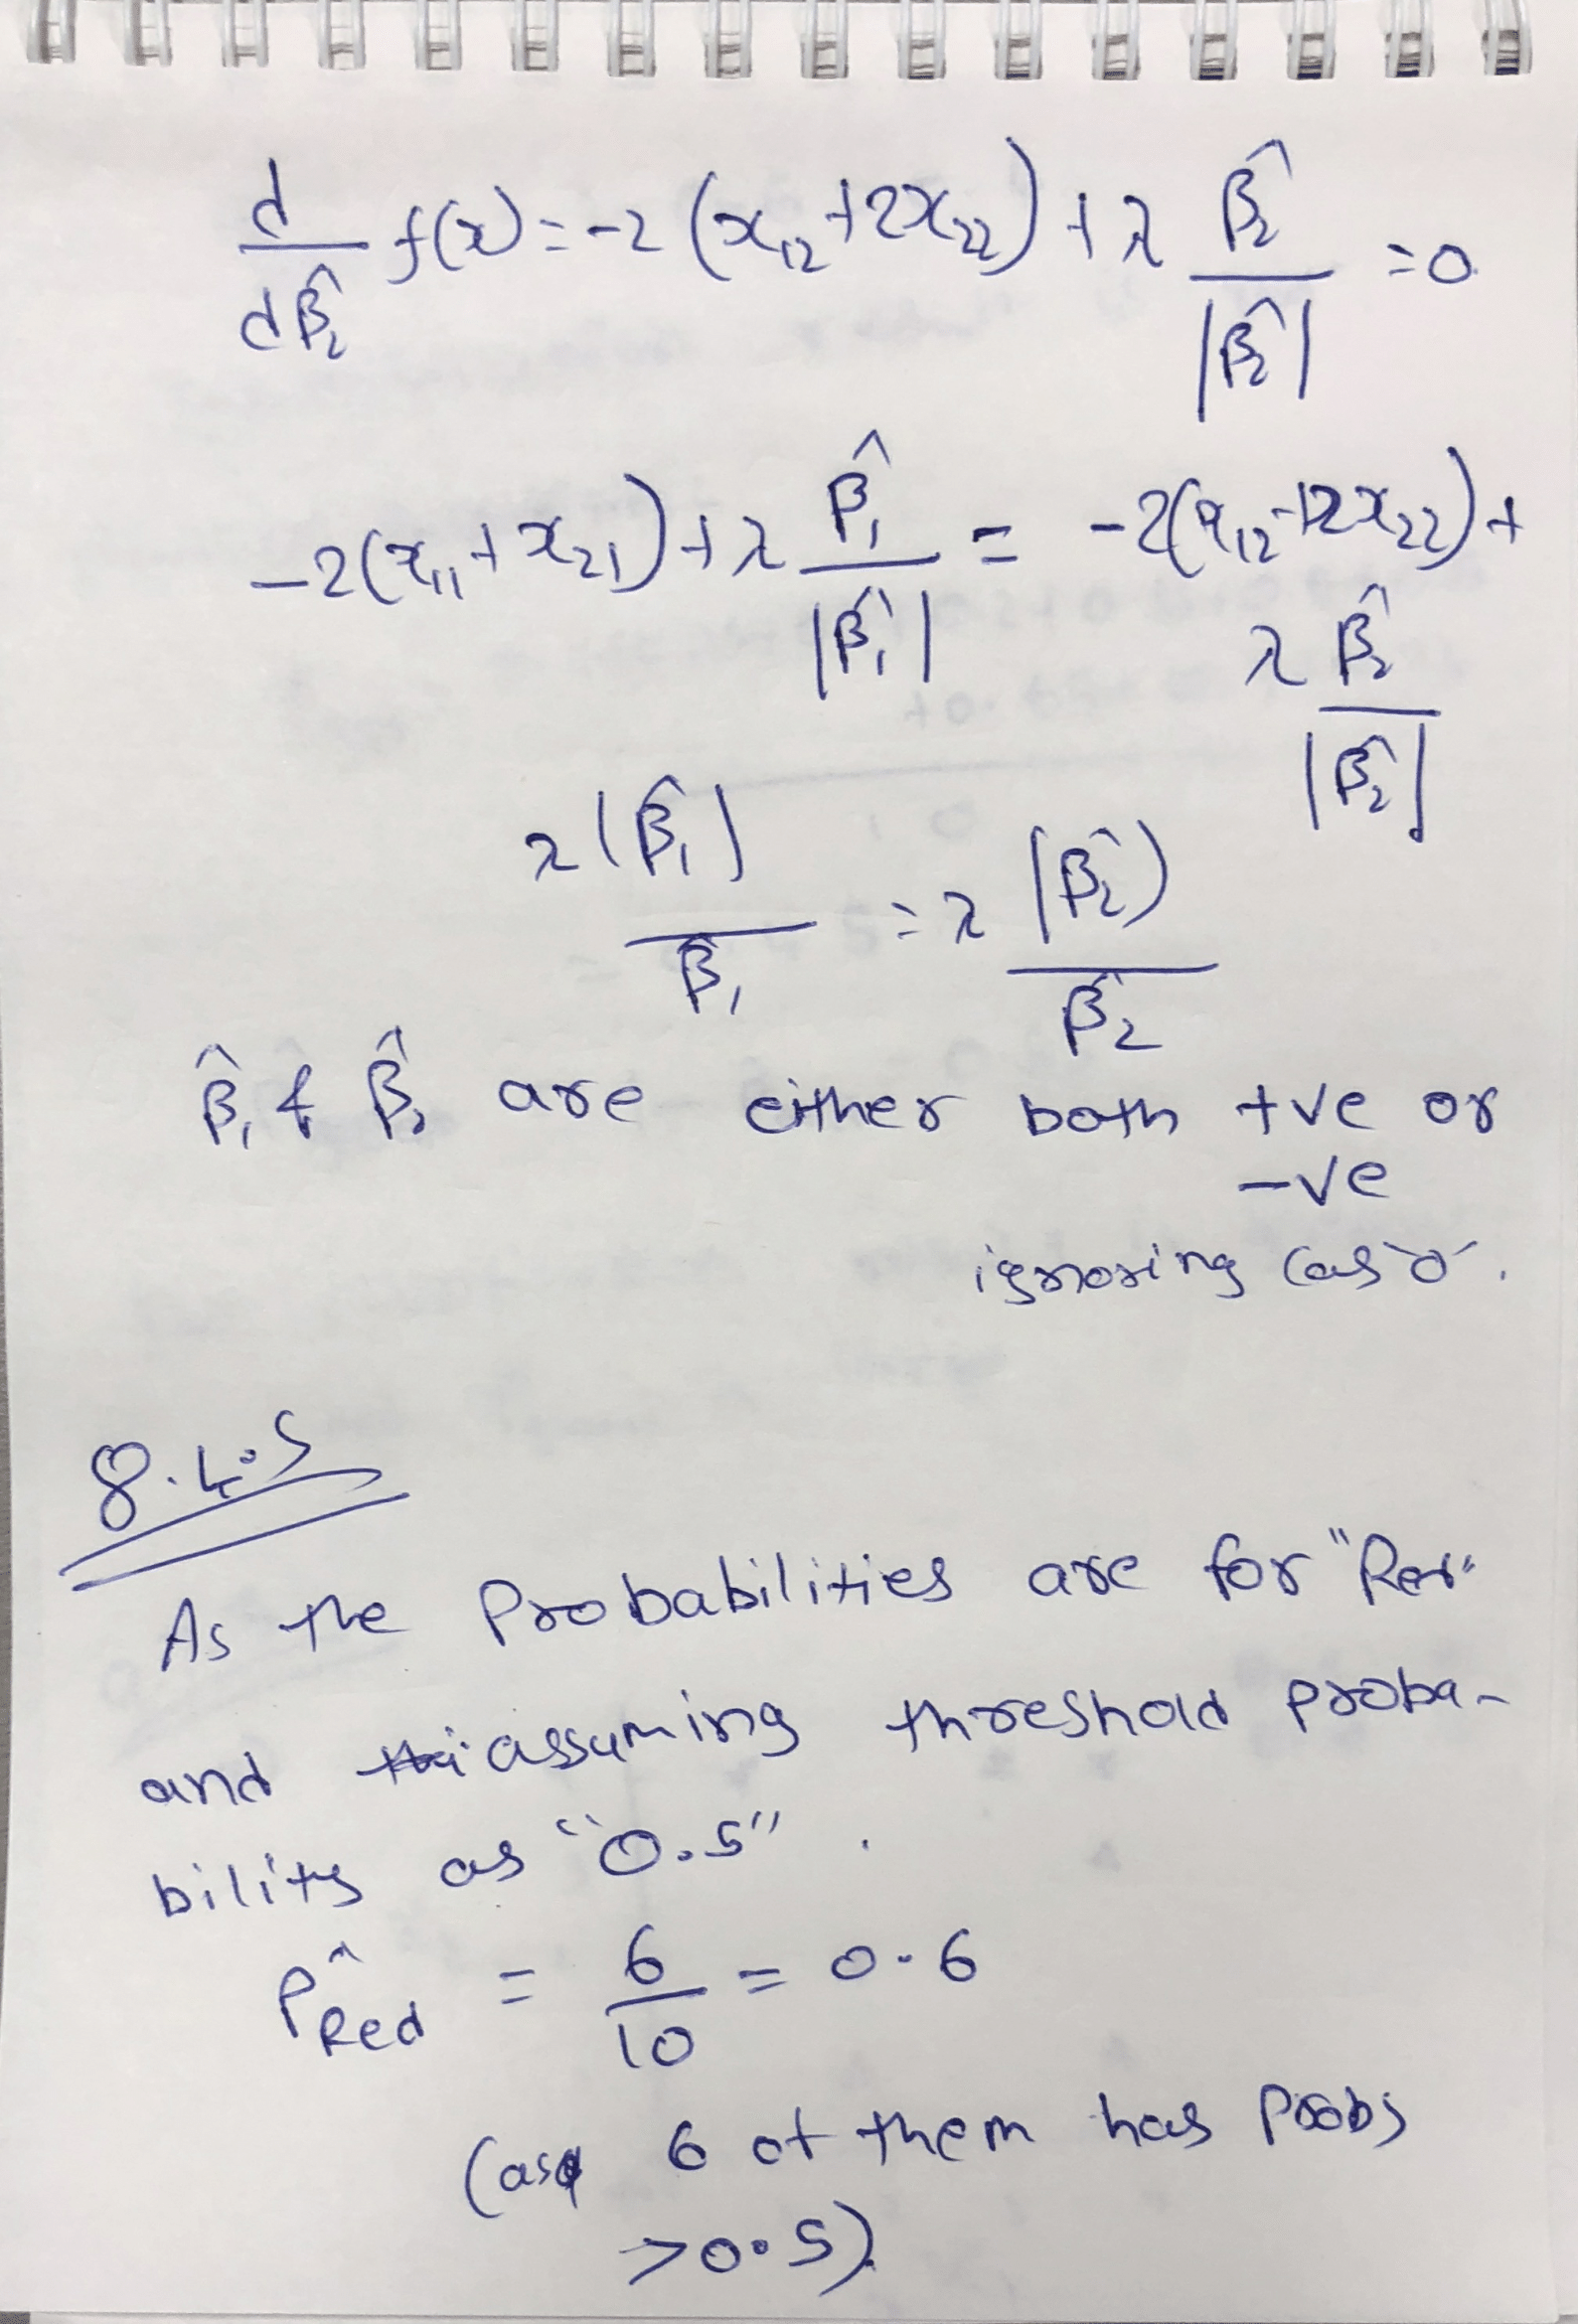 d/dβ̂₂ f(x) = -2 (x₁₂ + 2x₂₂) + λ β̂₂/|β̂₂| = 0
-2(x₁₁ + x₂₁) + λ β̂₁/|β̂₁| = -2(x₁₂ + 2x₂₂) +
λ β̂₂/|β̂₂|
λ |β̂₁|/β̂₁ = λ |β̂₂|/β̂₂
β̂₁ & β̂₂ are either both +ve or
-ve
ignoring case 0.
8.4.5
As the Probabilities are for "Red"
and assuming threshold proba-
bility as "0.5".
P̂Red = 6/10 = 0.6
(as 6 of them has Probs
>0.5).